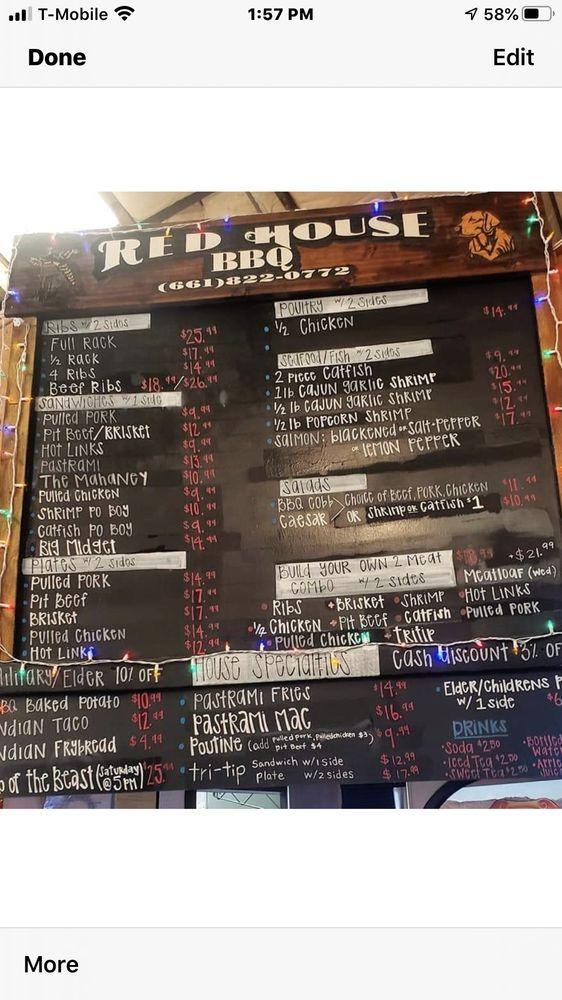 T-Mobile 1:57 PM 58%
Done Edit
RED HOUSE
BBQ
(661)822-0772
RIBS W/ 2 SIDES
FULL RACK $25.99
1/2 RACK $17.99
4 RIBS $14.99
BEEF RIBS $18.99/$26.99
SANDWICHES W/ 1 SIDE
PULLED PORK $9.99
PIT BEEF/BRISKET $12.99
HOT LINKS $9.99
PASTRAMI $13.99
THE MAHANEY $10.99
PULLED CHICKEN $9.99
SHRIMP PO BOY $10.99
CATFISH PO BOY $9.99
BIG MIDGET $14.99
PLATES W/ 2 SIDES
PULLED PORK $14.99
PIT BEEF $17.99
BRISKET $17.99
PULLED CHICKEN $14.99
HOT LINKS $12.99
POULTRY W/ 2 SIDES
1/2 CHICKEN $14.99
SEAFOOD/FISH W/ 2 SIDES
2 PIECE CATFISH $9.99
1 lb CAJUN GARLIC SHRIMP $20.99
1/2 lb CAJUN GARLIC SHRIMP $15.99
1/2 lb POPCORN SHRIMP $12.99
SALMON: BLACKENED OR SALT-PEPPER $17.99
OR LEMON PEPPER
SALADS
BBQ COBB CHOICE OF BEEF, PORK, CHICKEN $11.99
CAESAR OR SHRIMP OR CATFISH $1 $10.99
BUILD YOUR OWN 2 MEAT
COMBO W/ 2 SIDES
$21.99
MEATLOAF (WED)
RIBS BRISKET SHRIMP HOT LINKS
1/4 CHICKEN PIT BEEF CATFISH PULLED PORK
PULLED CHICKEN TRITIP
MILITARY/ELDER 10% OFF HOUSE SPECIALTIES CASH DISCOUNT 3% OF
BAKED POTATO $10.99
NDIAN TACO $12.99
NDIAN FRYBREAD $4.99
OF THE BEAST (SATURDAY @ 5PM) $25.99
PASTRAMI FRIES $14.99
PASTRAMI MAC $16.99
POUTINE (ADD PULLED PORK, PULLED CHICKEN $3) $9.99
PIT BEEF $4
TRI-TIP SANDWICH W/ 1 SIDE $12.99
PLATE W/ 2 SIDES $17.99
ELDER/CHILDRENS P
W/ 1 SIDE $6
DRINKS
SODA $2.50
ICED TEA $2.50
SWEET TEA $2.50
BOTTLED
WATER
APPLE
JUICE
More